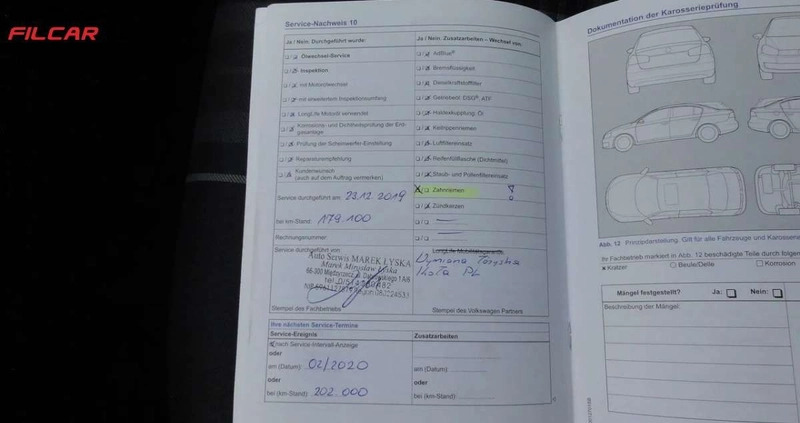 FILCAR
Service-Nachweis 10
Ja / Nein: Durchgeführt wurde:
Ölwechsel-Service
Inspektion
mit Motorölwechsel
mit erweitertem Inspektionsumfang
LongLife Motoröl verwendet
Korrosions- und Dichtheitsprüfung der Erdgasanlage
Prüfung der Scheinwerfer-Einstellung
Reparaturempfehlung
Kundenwunsch
(auch auf dem Auftrag vermerken)
Service durchgeführt am: 23.12.2019
bei km-Stand: 179.100
Rechnungsnummer:
Service durchgeführt von
Auto Serwis MAREK ŁYSKA
Marek Mirosław Łyska
Stempel des Fachbetriebs
Ja / Nein: Zusatzarbeiten – Wechsel von:
AdBlue®
Bremsflüssigkeit
Dieselkraftstofffilter
Getriebeöl: DSG®, ATF
Haldexkupplung: Öl
Keilrippenriemen
Luftfiltereinsatz
Reifenfüllflasche (Dichtmittel)
Staub- und Pollenfiltereinsatz
Zahnriemen
Zündkerzen
LongLife Mobilitätsgarantie
Wymiana
Koła
Stempel des Volkswagen Partners
Ihre nächsten Service-Termine
Service-Ereignis
nach Service-Intervall-Anzeige
oder
am (Datum): 02/2020
oder
bei (km-Stand): 202.000
Zusatzarbeiten
am (Datum):
oder
bei (km-Stand):
Dokumentation der Karosserieprüfung
Abb. 12 Prinzipdarstellung. Gilt für alle Fahrzeuge und Karosserie
Ihr Fachbetrieb markiert in Abb. 12 beschädigte Teile durch folgen
x Kratzer
Beule/Delle
Korrosion
Mängel festgestellt? Ja: Nein:
Beschreibung der Mängel: